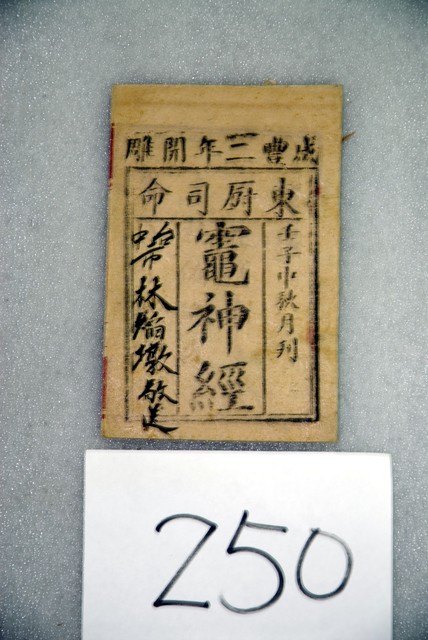 咸豐三年開雕
東厨司命
壬子中秋月刊
竈神經
台中市林焰墩敬送
250